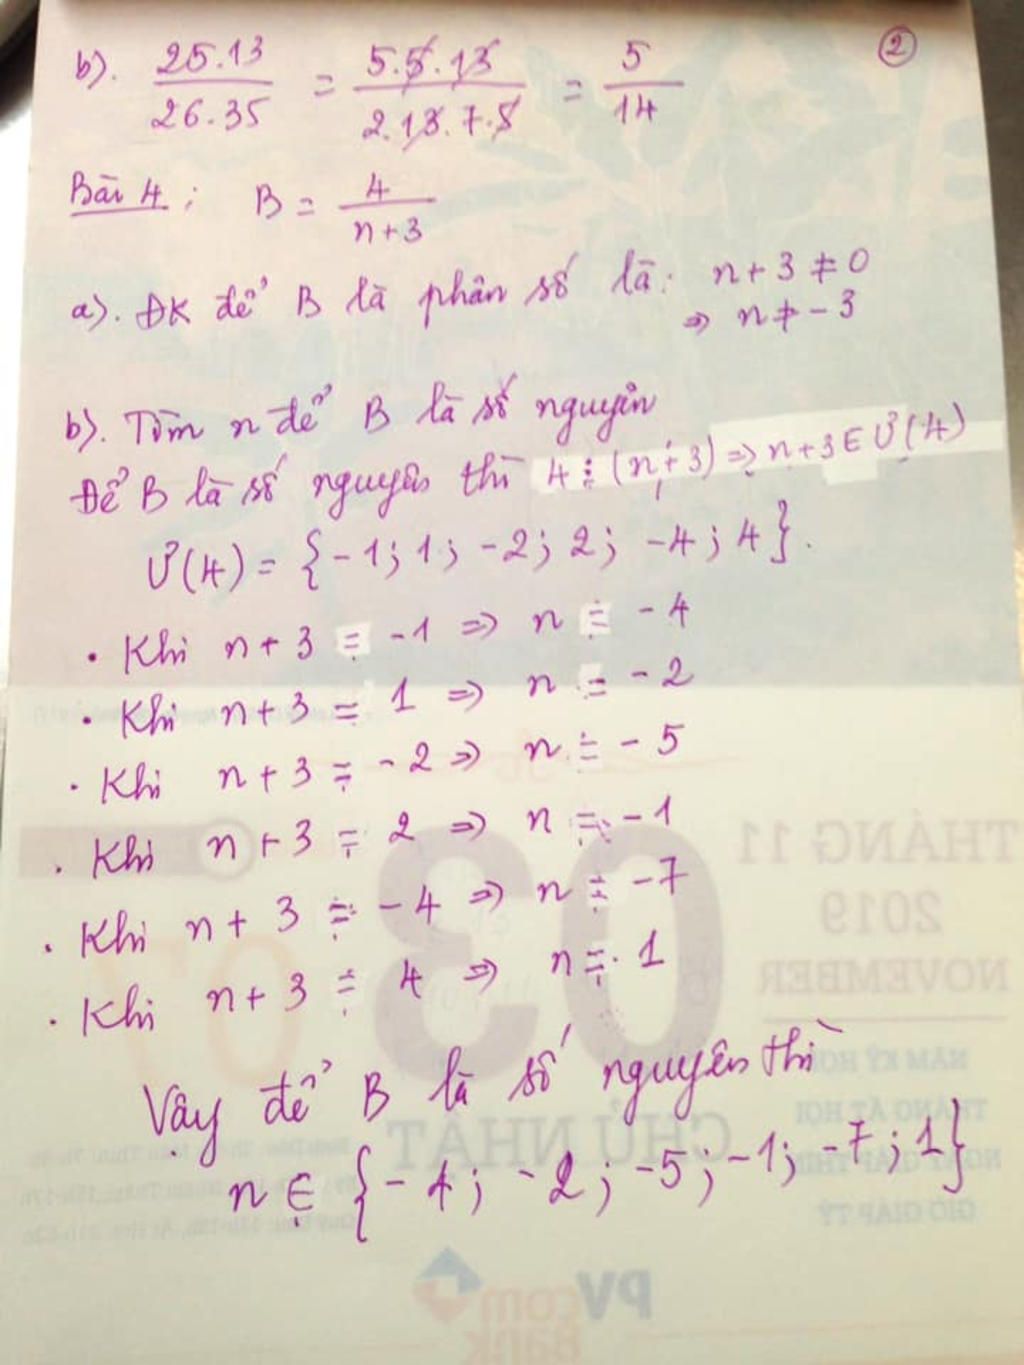 ②
b). 25.13/26.35 = 5.5.13/2.13.7.5 = 5/14
Bài 4: B = 4/n+3
a). ĐK để B là phân số là: n + 3 ≠ 0
⇒ n ≠ - 3
b). Tìm n để B là số nguyên
Để B là số nguyên thì 4 ⋮ (n+3) ⇒ n+3 ∈ Ư(4)
Ư(4) = {-1; 1; -2; 2; -4; 4}.
. Khi n + 3 = -1 ⇒ n = - 4
. Khi n+3 = 1 ⇒ n = - 2
. Khi n + 3 = - 2 ⇒ n = - 5
. Khi n + 3 = 2 ⇒ n = - 1
. Khi n + 3 = - 4 ⇒ n = -7
. Khi n + 3 = 4 ⇒ n = 1
Vậy để B là số nguyên thì
n ∈ {- 4; - 2; -5; -1; -7; 1}
03
07
THÁNG 11
2019
NOVEMBER
NĂM KỶ HỢI
THÁNG ẤT HỢI
CHỦ NHẬT
GIỜ GIÁP TÝ
PV
com
Bank